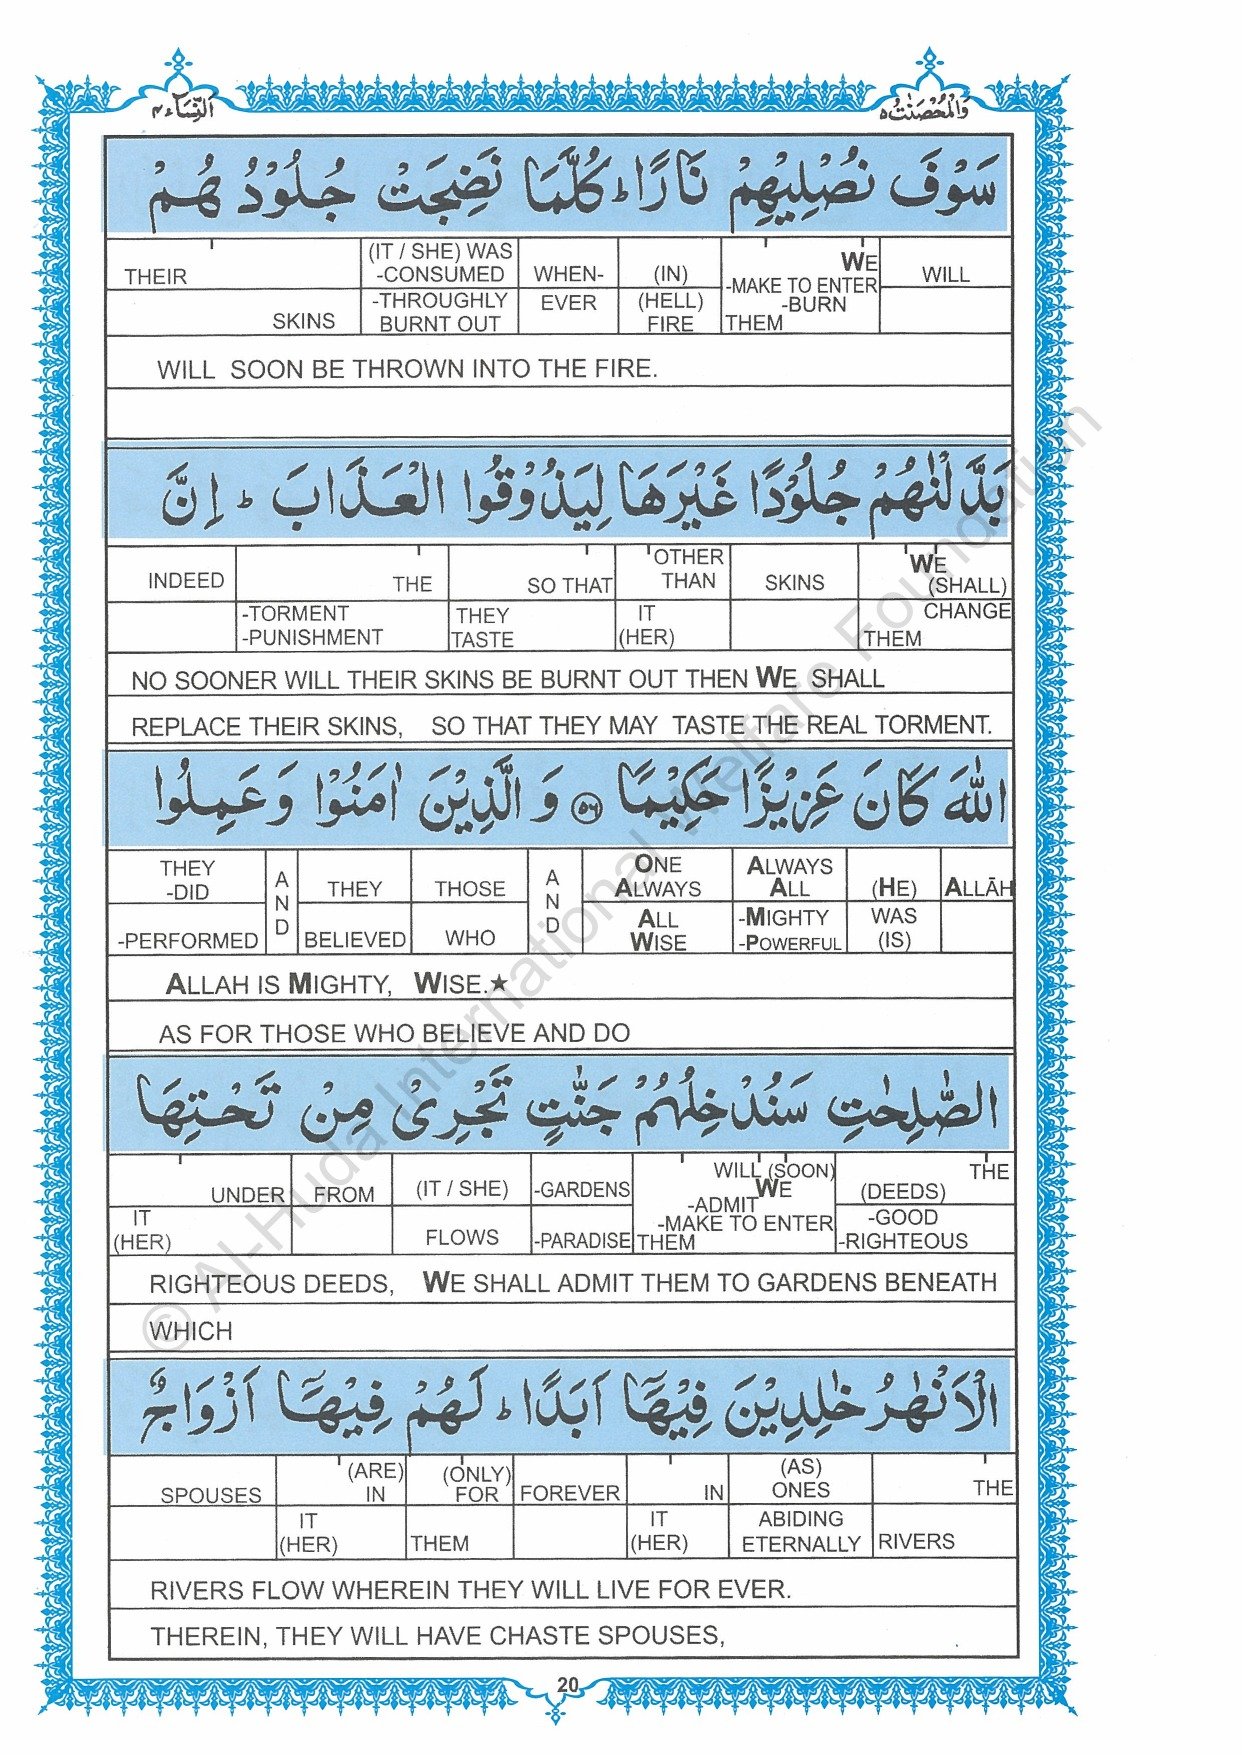 وَالْمُحْصَنٰتُ ٥
النِّسَآء ٤
سَوْفَ نُصْلِيْهِمْ نَارًا ؕ كُلَّمَا نَضِجَتْ جُلُوْدُ هُمْ
WILL
WE -MAKE TO ENTER -BURN THEM
(IN) (HELL) FIRE
WHEN- EVER
(IT / SHE) WAS -CONSUMED -THROUGHLY BURNT OUT
THEIR SKINS
WILL SOON BE THROWN INTO THE FIRE.
بَدَّلْنٰهُمْ جُلُوْدًا غَيْرَهَا لِيَذُوْقُوا الْعَذَابَ ؕ اِنَّ
WE (SHALL) CHANGE THEM
SKINS
OTHER THAN IT (HER)
SO THAT THEY TASTE
THE -TORMENT -PUNISHMENT
INDEED
NO SOONER WILL THEIR SKINS BE BURNT OUT THEN WE SHALL
REPLACE THEIR SKINS, SO THAT THEY MAY TASTE THE REAL TORMENT.
اللّٰهَ كَانَ عَزِيْزًا حَكِيْمًا ٥٦ وَ الَّذِيْنَ اٰمَنُوْا وَ عَمِلُوا
ALLĀH
(HE) WAS (IS)
ALWAYS ALL -MIGHTY -POWERFUL
ONE ALWAYS ALL WISE
AND
THOSE WHO
THEY BELIEVED
AND
THEY -DID -PERFORMED
ALLAH IS MIGHTY, WISE.★
AS FOR THOSE WHO BELIEVE AND DO
الصّٰلِحٰتِ سَنُدْخِلُهُمْ جَنّٰتٍ تَجْرِيْ مِنْ تَحْتِهَا
THE (DEEDS) -GOOD -RIGHTEOUS
WILL (SOON) WE -ADMIT -MAKE TO ENTER THEM
-GARDENS -PARADISE
(IT / SHE) FLOWS
FROM
UNDER IT (HER)
RIGHTEOUS DEEDS, WE SHALL ADMIT THEM TO GARDENS BENEATH
WHICH
الْاَنْهٰرُ خٰلِدِيْنَ فِيْهَآ اَبَدًا ؕ لَهُمْ فِيْهَآ اَزْوَاجٌ
THE RIVERS
(AS) ONES ABIDING ETERNALLY
IN IT (HER)
FOREVER
(ONLY) FOR THEM
(ARE) IN IT (HER)
SPOUSES
RIVERS FLOW WHEREIN THEY WILL LIVE FOR EVER.
THEREIN, THEY WILL HAVE CHASTE SPOUSES,
20
© Al-Huda International Welfare Foundation